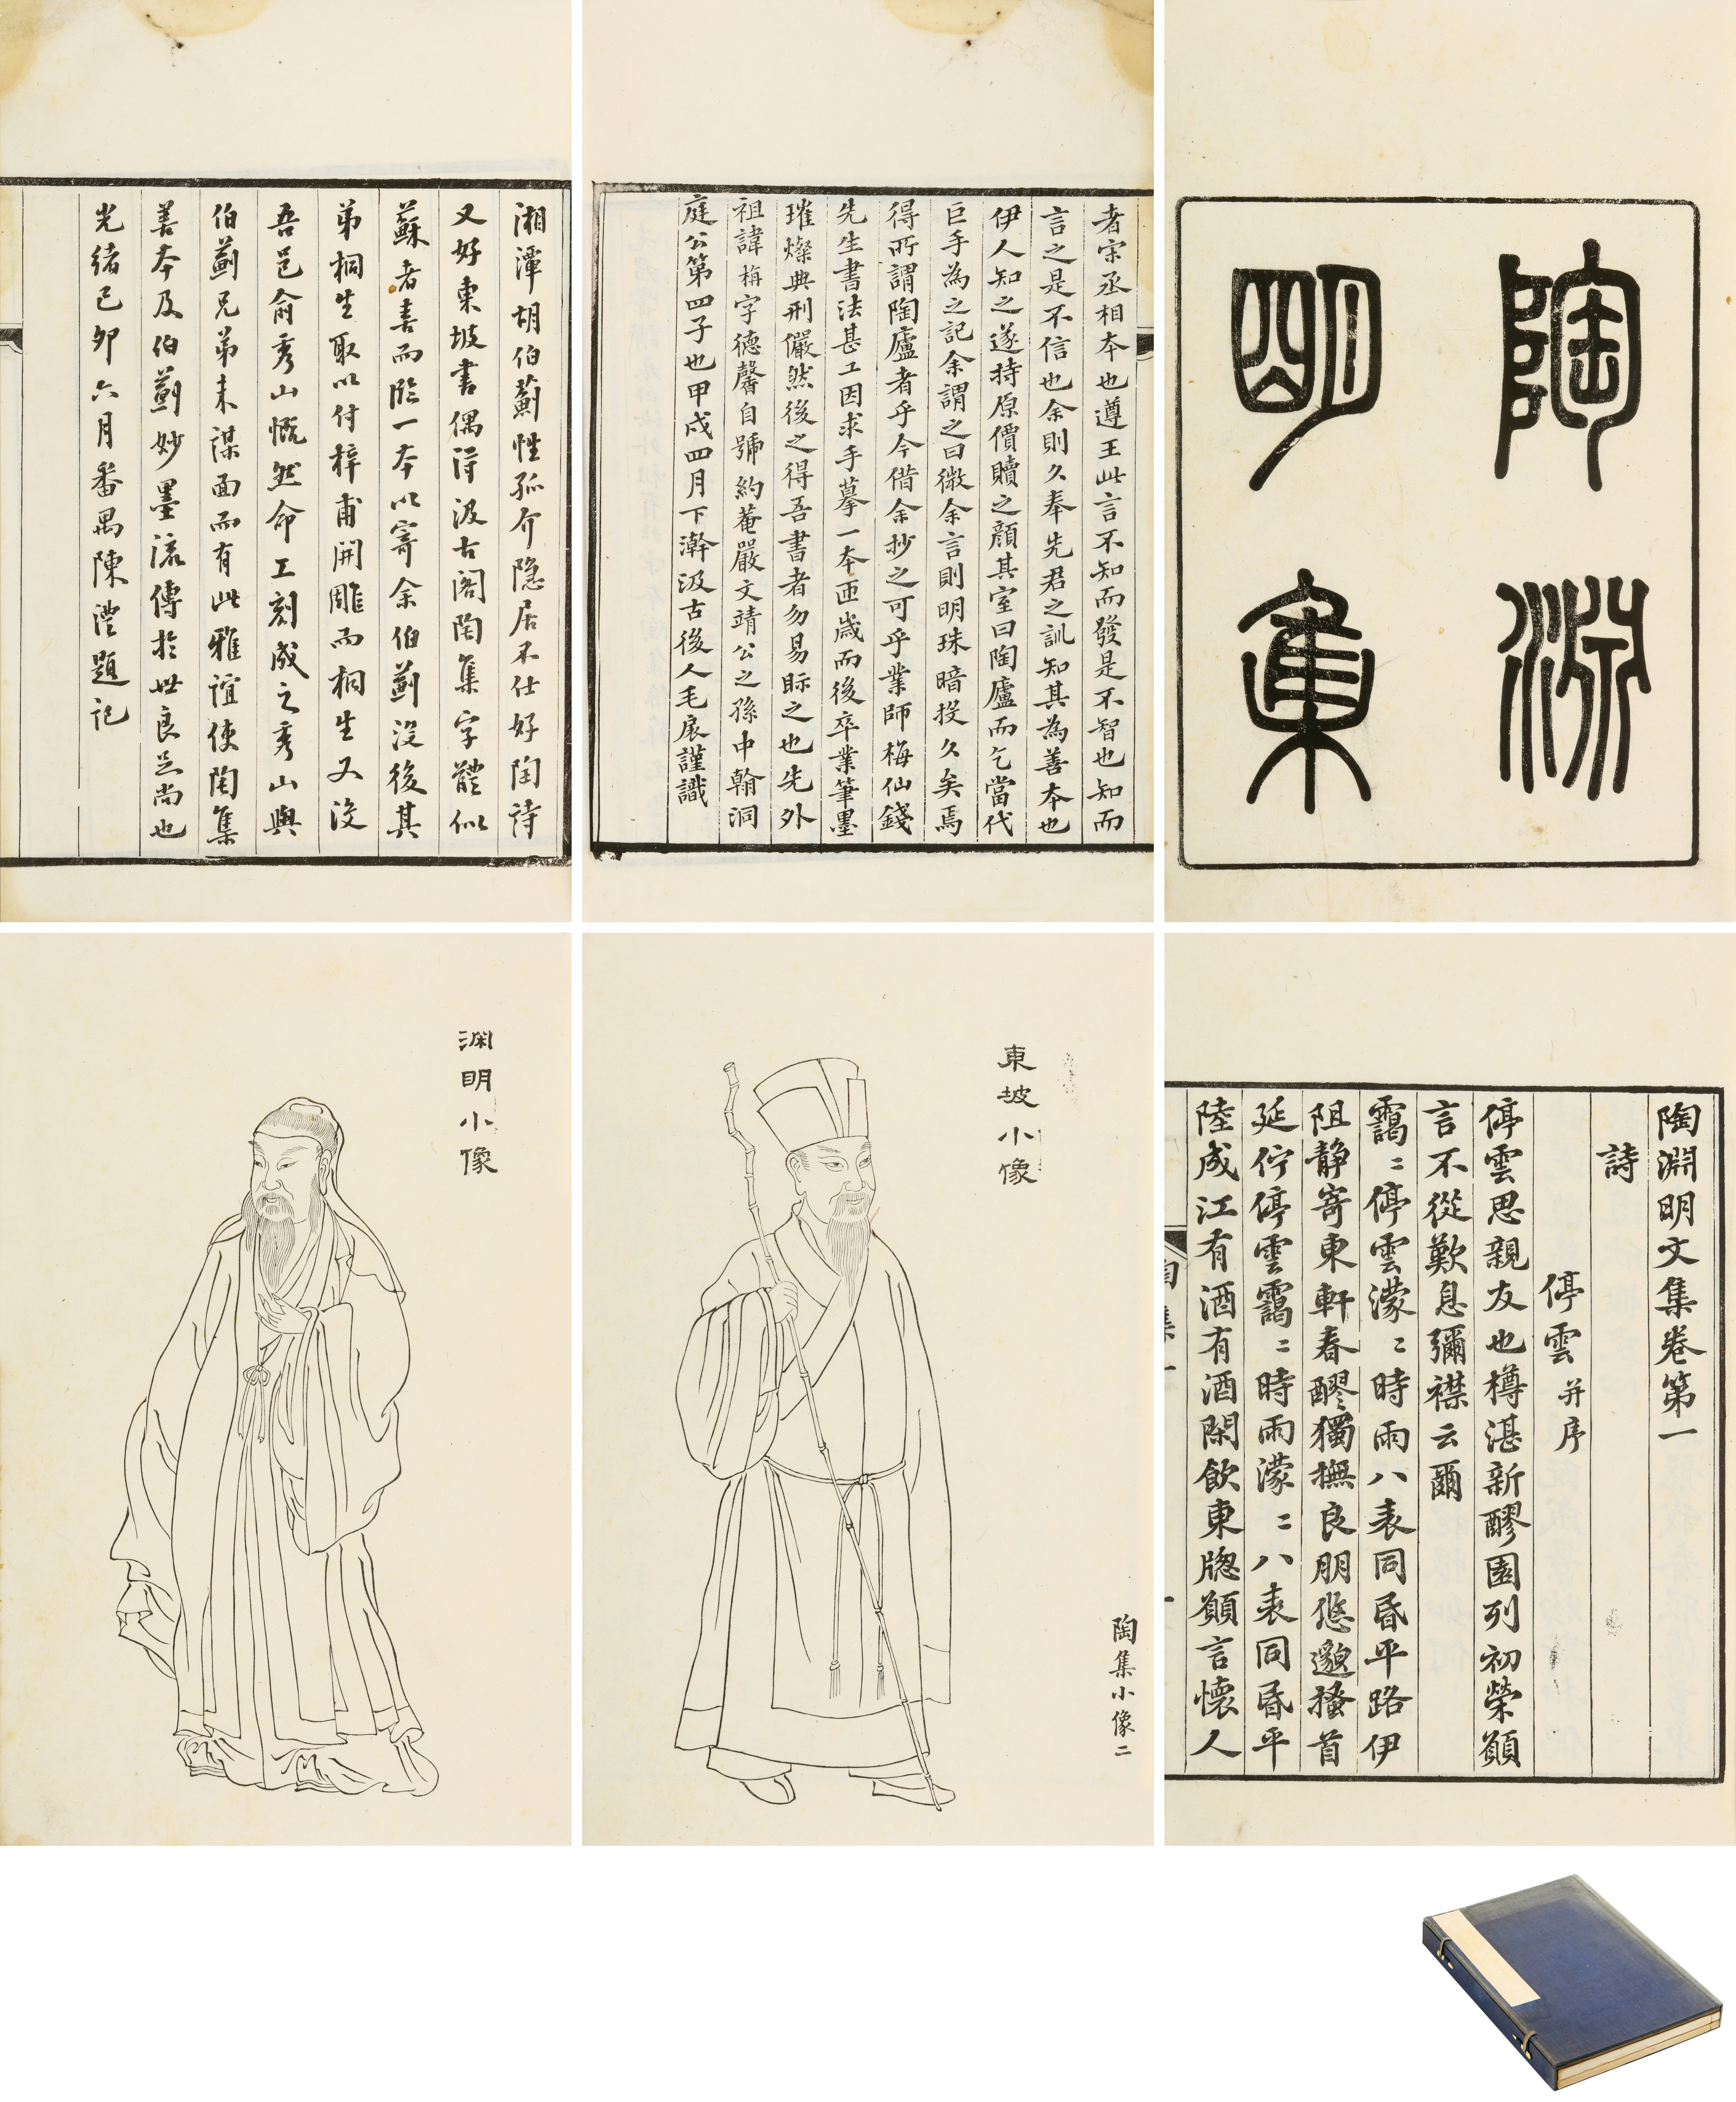 陶淵
明集
者宋丞相本也遵王此言不知而發是不智也知而
言之是不信也余則久奉先君之訓知其為善本也
伊人知之遂持原價贖之顏其室曰陶廬而乞當代
巨手為之記余謂之曰微余言則明珠暗投久矣焉
得所謂陶廬者乎今借余抄之可乎業師梅仙錢
先生書法甚工因求手摹一本匝歲而後卒業筆墨
璀燦典刑儼然後之得吾書者勿易眎之也先外
祖諱栴字德馨自號約菴嚴文靖公之孫中翰洞
庭公第四子也甲戌四月下澣汲古後人毛扆謹識
湘潭胡伯薊性孤介隱居不仕好陶詩
又好東坡書偶得汲古閣陶集字體似
蘇者喜而臨一本以寄余伯薊沒後其
弟桐生取以付梓甫開雕而桐生又沒
吾邑俞秀山慨然命工刻成之秀山與
伯薊兄弟未謀面而有此雅誼使陶集
善本及伯薊妙墨流傳於世良足尚也
光緒己卯六月番禺陳澧題記
陶淵明文集卷第一
詩
停雲并序
停雲思親友也樽湛新醪園列初榮願
言不從歎息彌襟云爾
靄〻停雲濛〻時雨八表同昏平路伊
阻靜寄東軒春醪獨撫良朋悠邈搔首
延佇停雲靄〻時雨濛〻八表同昏平
陸成江有酒有酒閑飲東牕願言懷人
陶集一
東坡小像
陶集小像二
淵明小像